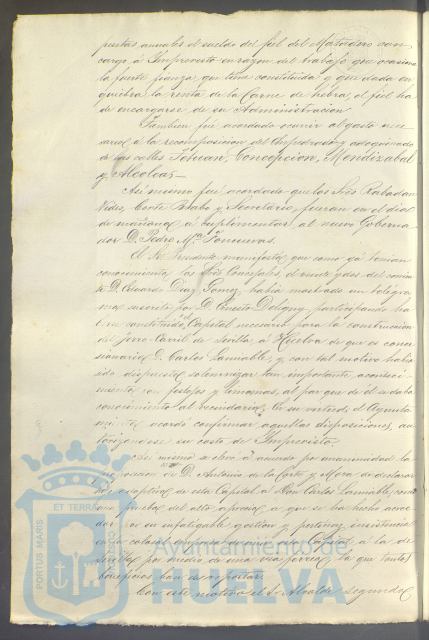 pesetas anuales el sueldo del fiel del Matadero con
cargo á Imprevistos en razon del trabajo que ocasiona
la fuerte fianza que tiene constituida y que dada en
quiebra la renta de la Carne de hebra el fiel ha
de encargarse de su Administracion
Tambien fué acordado ocurrir al gasto nece
sario á la recomposicion del Empedrado y adoquinado
de las calles Tetuan, Concepcion, Mendizabal
y Alcolea=
Asi mismo fué acordado que los Sres Rabadan
Vides, Corte Bravo y Secretario, fueran en el dia
de mañana á cumplimentar al nuevo Goberna
dor D. Pedro Mª
El Sr Presidente manifestó que como ya tenian
conocimiento los Sres Concejales, el veinte y dos del corrien
te D. Eduardo Diaz Gomez habia mostrado un telégra
ma suscrito por D. Ernesto Deligny, participando ha
berse constituido el Capital necesario para la construccion
del ferro-carril de Sevilla á Huelva de que es conce
sionario D. Carlos Lamiable, y con tal motivo habia
sido dispuesto solemnizar tan importante aconteci
miento con festejos y limosnas, al par que de él se daba
conocimiento al vecindario. En su virtud, el Ayunta
miento acordó confirmar aquellas disposiciones, au
torizandose su costo de Imprevistos
Asi mismo se elevó á acuerdo por unanimidad la
mocion de D. Antonio de la Corte y Mora de declarar
hijo adoptivo de esta Capital á Don Carlos Lamiable, como
una prueba del alto aprecio á que se ha hecho acree
dor por su infatigable gestion y portentosa insistencia
en la colosal empresa de unir esta Capital á la de
Sevilla por medio de una via ferrea, la que tantos
beneficios han de reportar.
Con este motivo el Sr Alcalde segundo
PORTUS MARIS
ET TERRAE
Ayuntamiento de
HUELVA